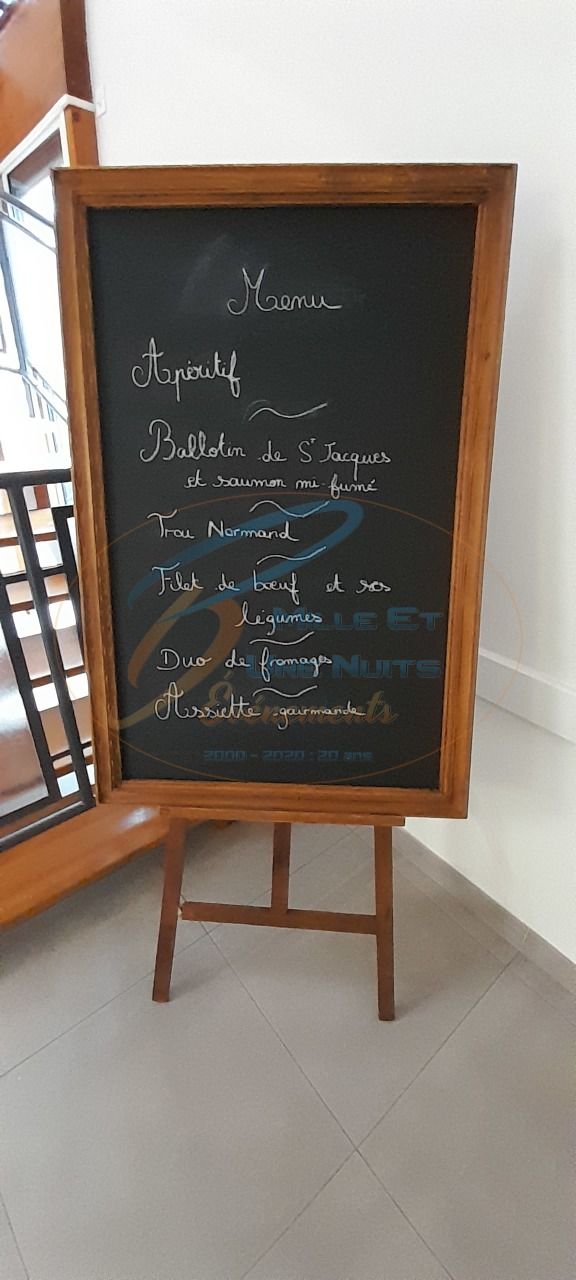 Menu
Apéritif
Ballotin de St Jacques
et saumon mi-fumé
Trou Normand
Filet de bœuf et ses
légumes
Mille Et
Duo de fromages
Une Nuits
Assiette gourmande
Événements
2000 - 2020 : 20 ans